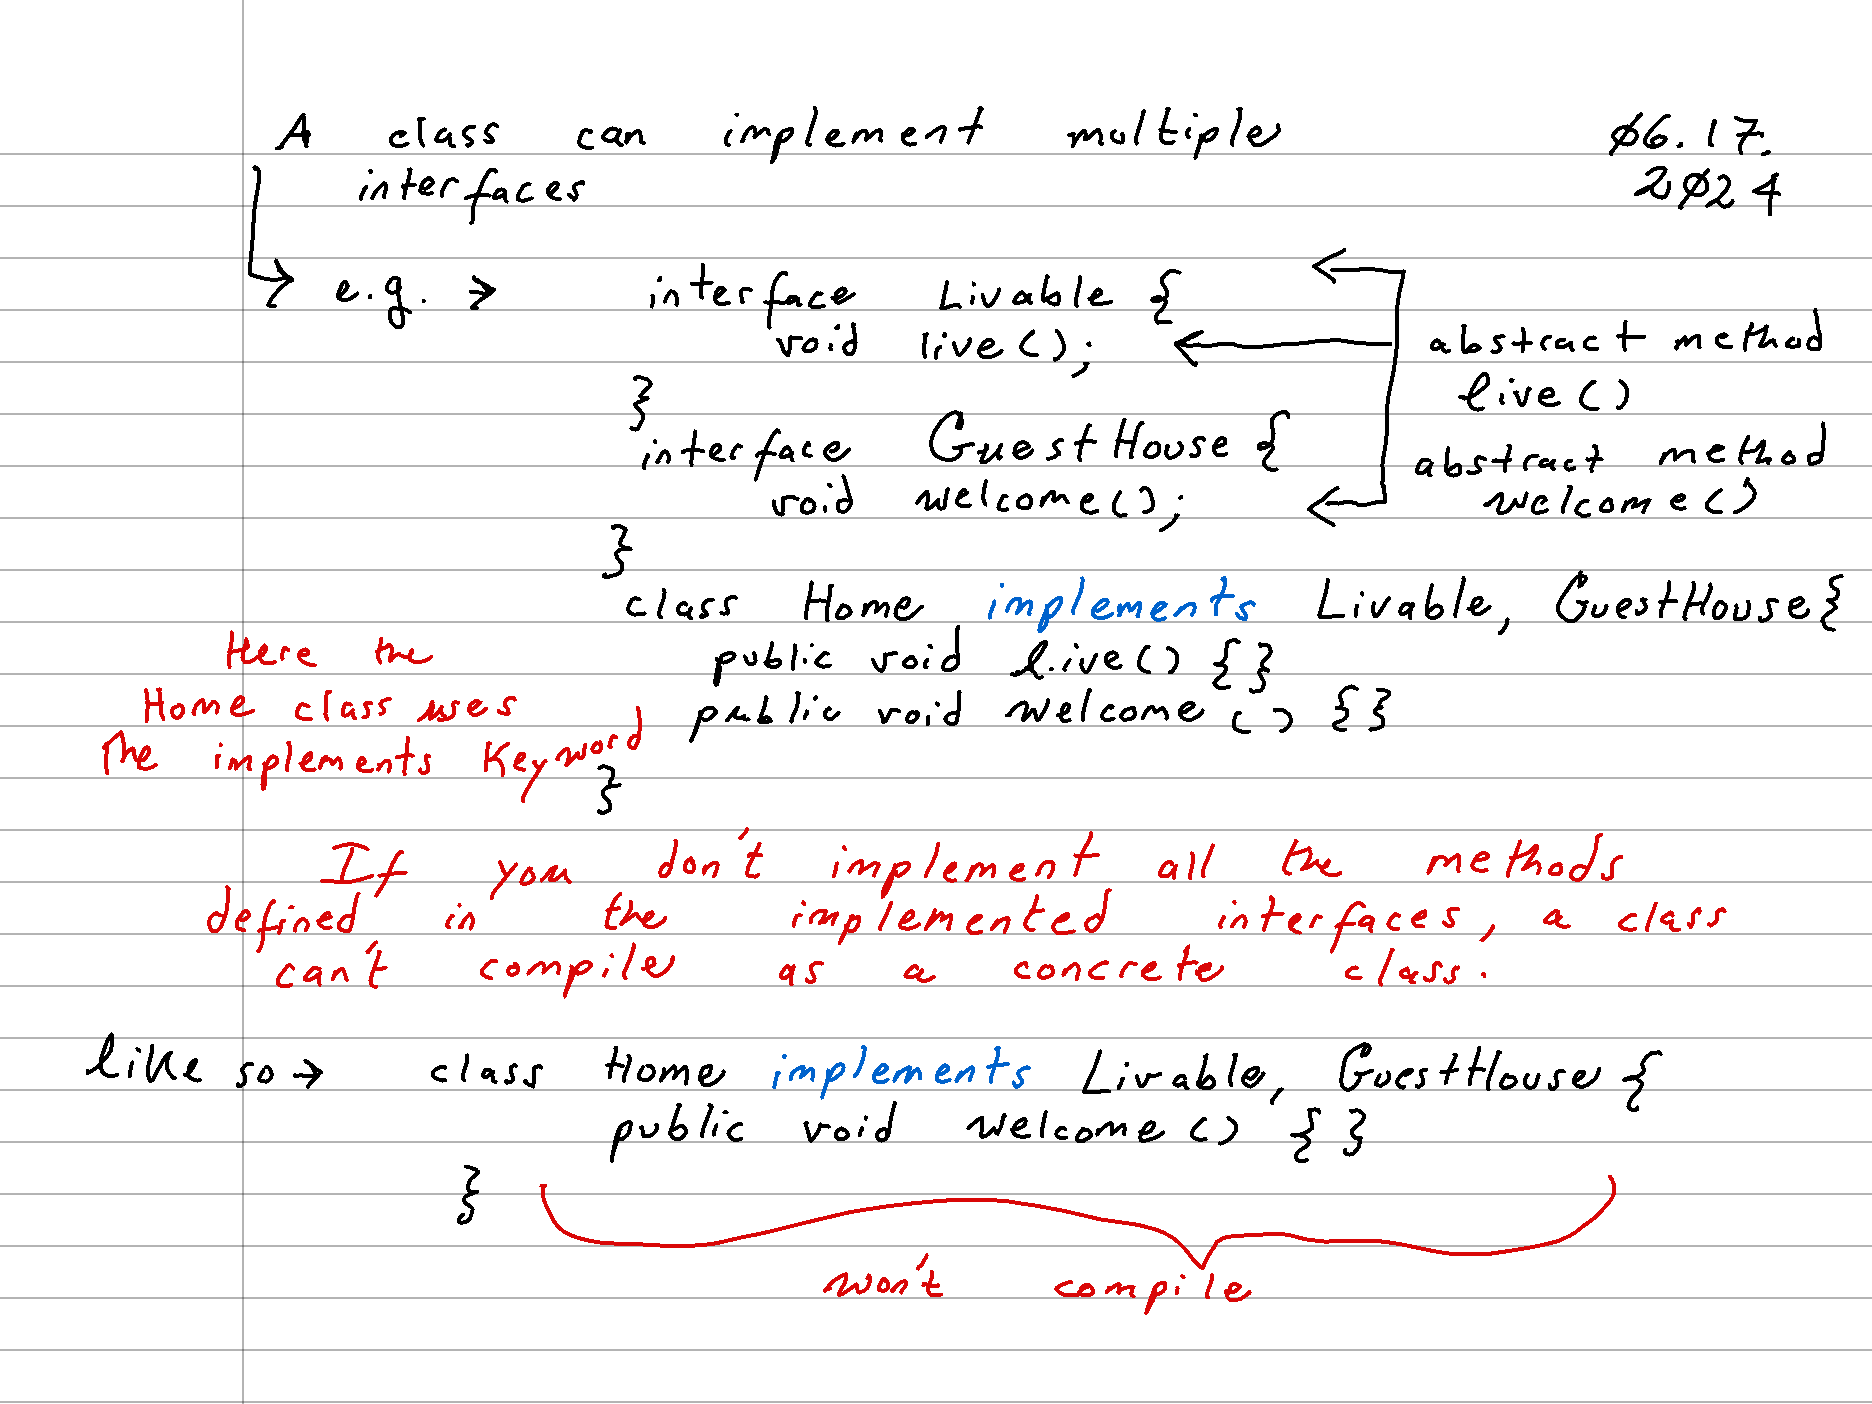 A class can implement multiple
interfaces
06.17.
2024
e.g. → interface Livable {
void live();
}
abstract method
live()
interface GuestHouse {
void welcome();
}
abstract method
welcome()
class Home implements Livable, GuestHouse{
public void live() {}
public void welcome () {}
}
Here the
Home class uses
The implements Keyword
If you don't implement all the methods
defined in the implemented interfaces, a class
can't compile as a concrete class.
like so → class Home implements Livable, GuestHouse {
public void welcome () { }
}
won't compile